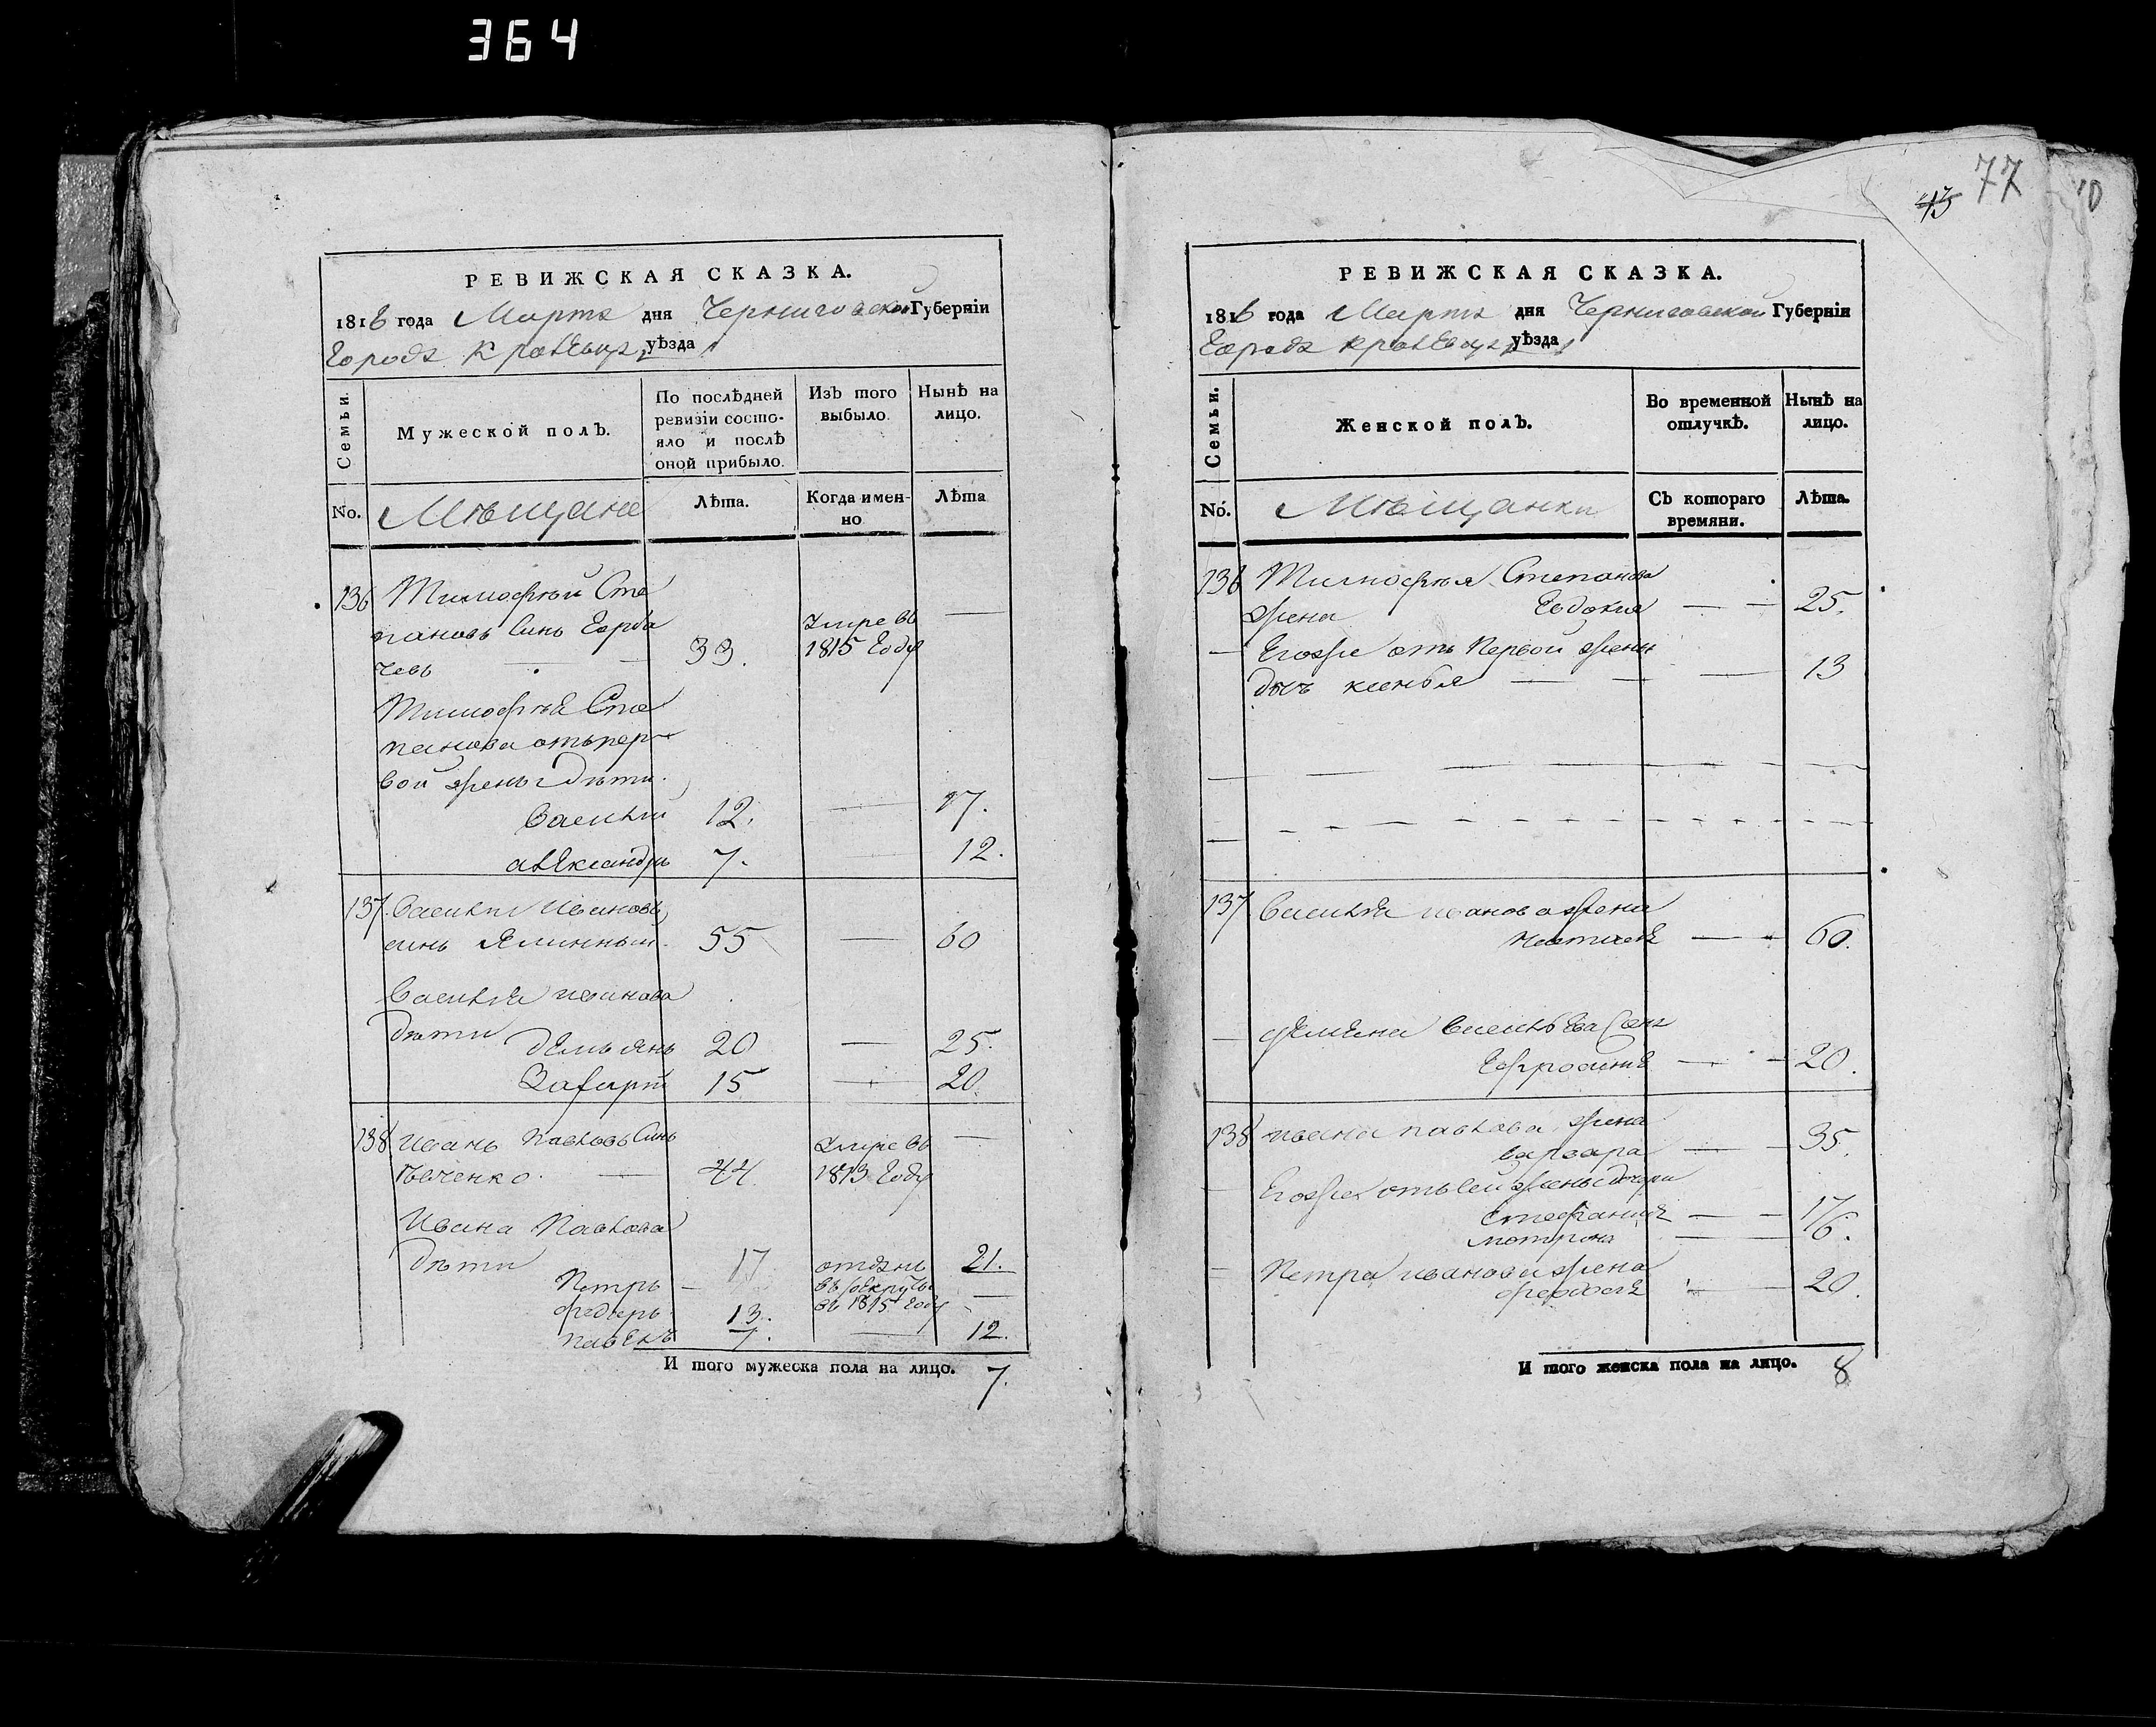 364
РЕВИЖСКАЯ СКАЗКА.
1816 года Марта дня Черниговской Губернїи
Города Кролевца уѣзда
Семьи.
Мужеской полъ.
По послѣдней ревизїи состояло и послѣ оной прибыло.
Изъ того выбыло.
Нынѣ на лицо.
No. Мѣщане
Лѣта.
Когда имен-
но
Лѣта
136 Тимофѣй Сте
пановъ Синъ Горба
чевъ — 33. Умре въ 1815 Году —
Тимофѣя Сте
панова отъ пер-
вой жены дѣти.
Василий 12. — 17.
александръ 7. — 12.
137. Василий Ивановъ
синъ 55 — 60
Василия иванова
дѣти
демьянъ 20 — 25.
15 — 20.
138 иванъ павловъ Синъ
— 44 Умре въ 1813 Году —
Ивана Павлова
дѣти
Петръ — 17 21.
федоръ 13. отданъ въ рекруты въ 1815 Году —
павелъ 7. — 12.
И того мужеска пола на лицо. 7.
77
РЕВИЖСКАЯ СКАЗКА.
1816 года Марта дня Черниговской Губернїи
Города Кролевца уѣзда
Семьи.
Женской полъ.
Во временной отлучкѣ.
Нынѣ на лицо.
No. Мѣщанки
Съ котораго времяни.
Лѣта.
136 Тимофѣя Степанова
жена Евдокия — 25.
— Егоже отъ Первой жены
дочь — 13
137 Василия иванова жена
— 60.
— васильева
— 20.
138 ивана павлова жена
варвара — 35.
— Егоже отъ сей жены дочери
— 17
мотрона — 6.
— Петра иванова жена
— 20.
И того женска пола на лицо. 8